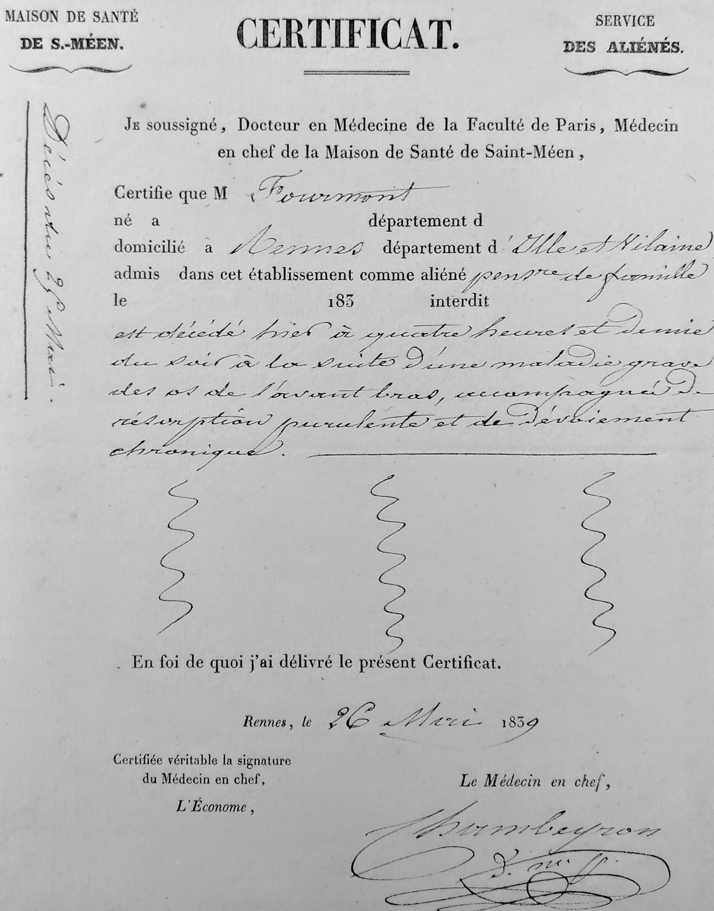 MAISON DE SANTÉ
DE S.-MÉEN.
CERTIFICAT.
SERVICE
DES ALIÉNÉS.
Décès du 25 Mai.
JE soussigné, Docteur en Médecine de la Faculté de Paris, Médecin
en chef de la Maison de Santé de Saint-Méen,
Certifie que M Fourmont
né a département d
domicilié à Rennes département d'Ille et Vilaine
admis dans cet établissement comme aliéné pensre de famille
le 183 interdit
est décédé hier à quatre heures et demie
du soir à la suite d'une maladie grave
des os de l'avant bras, accompagnée de
résorption purulente et de dévoiement
chronique.
En foi de quoi j'ai délivré le présent Certificat.
Rennes, le 26 Mai 1839
Certifiée véritable la signature
du Médecin en chef,
L'Économe,
Le Médecin en chef,
Chambeyron
d. m. p.